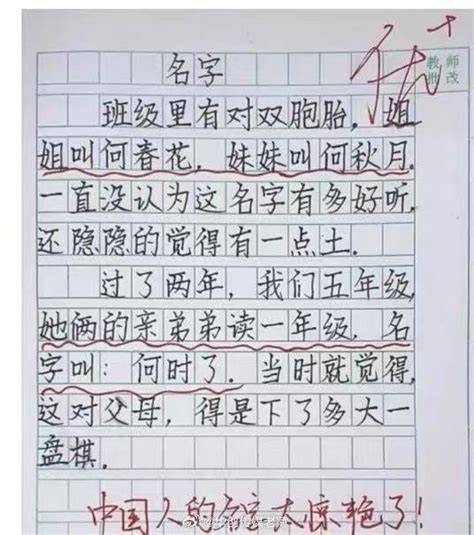 优+
教师
批改
名字
班级里有对双胞胎，姐
姐叫何春花，妹妹叫何秋月.
一直没认为这名字有多好听,
还隐隐的觉得有一点土.
过了两年，我们五年级,
她俩的亲弟弟读一年级. 名
字叫：何时了. 当时就觉得,
这对父母，得是下了多大一
盘棋.
中国人的名字太惊艳了!